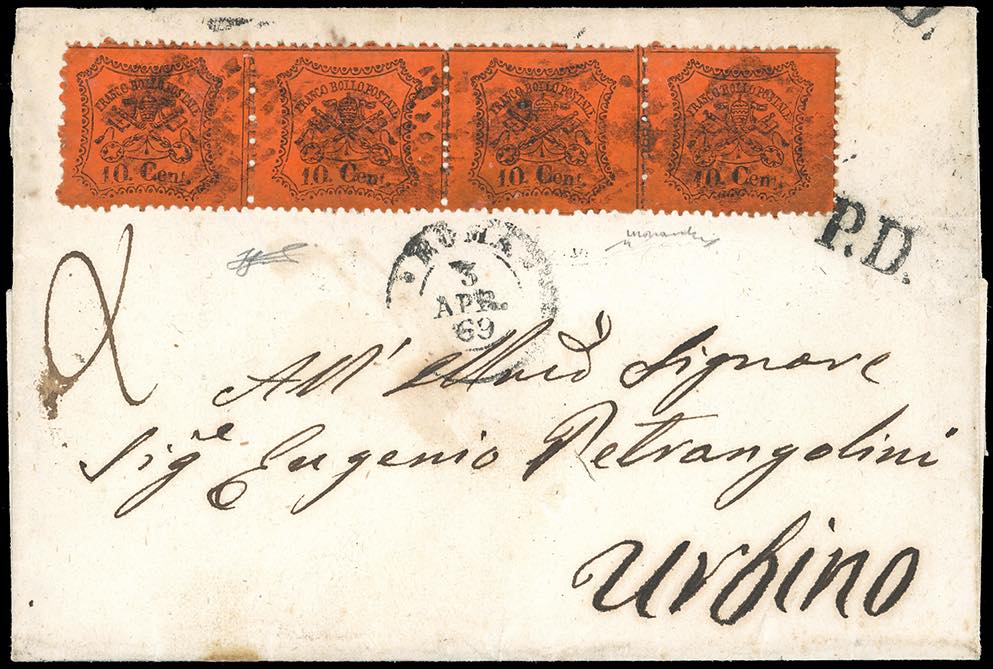 FRANCO BOLLO POSTALE FRANCO BOLLO POSTALE FRANCO BOLLO POSTALE FRANCO BOLLO POSTALE
10. Cent. 10. Cent. 10. Cent. 10. Cent.
P.D.
ROMA
3
APR.
69
2
All' Signore
Sig.re Eugenio Petrangolini
Urbino